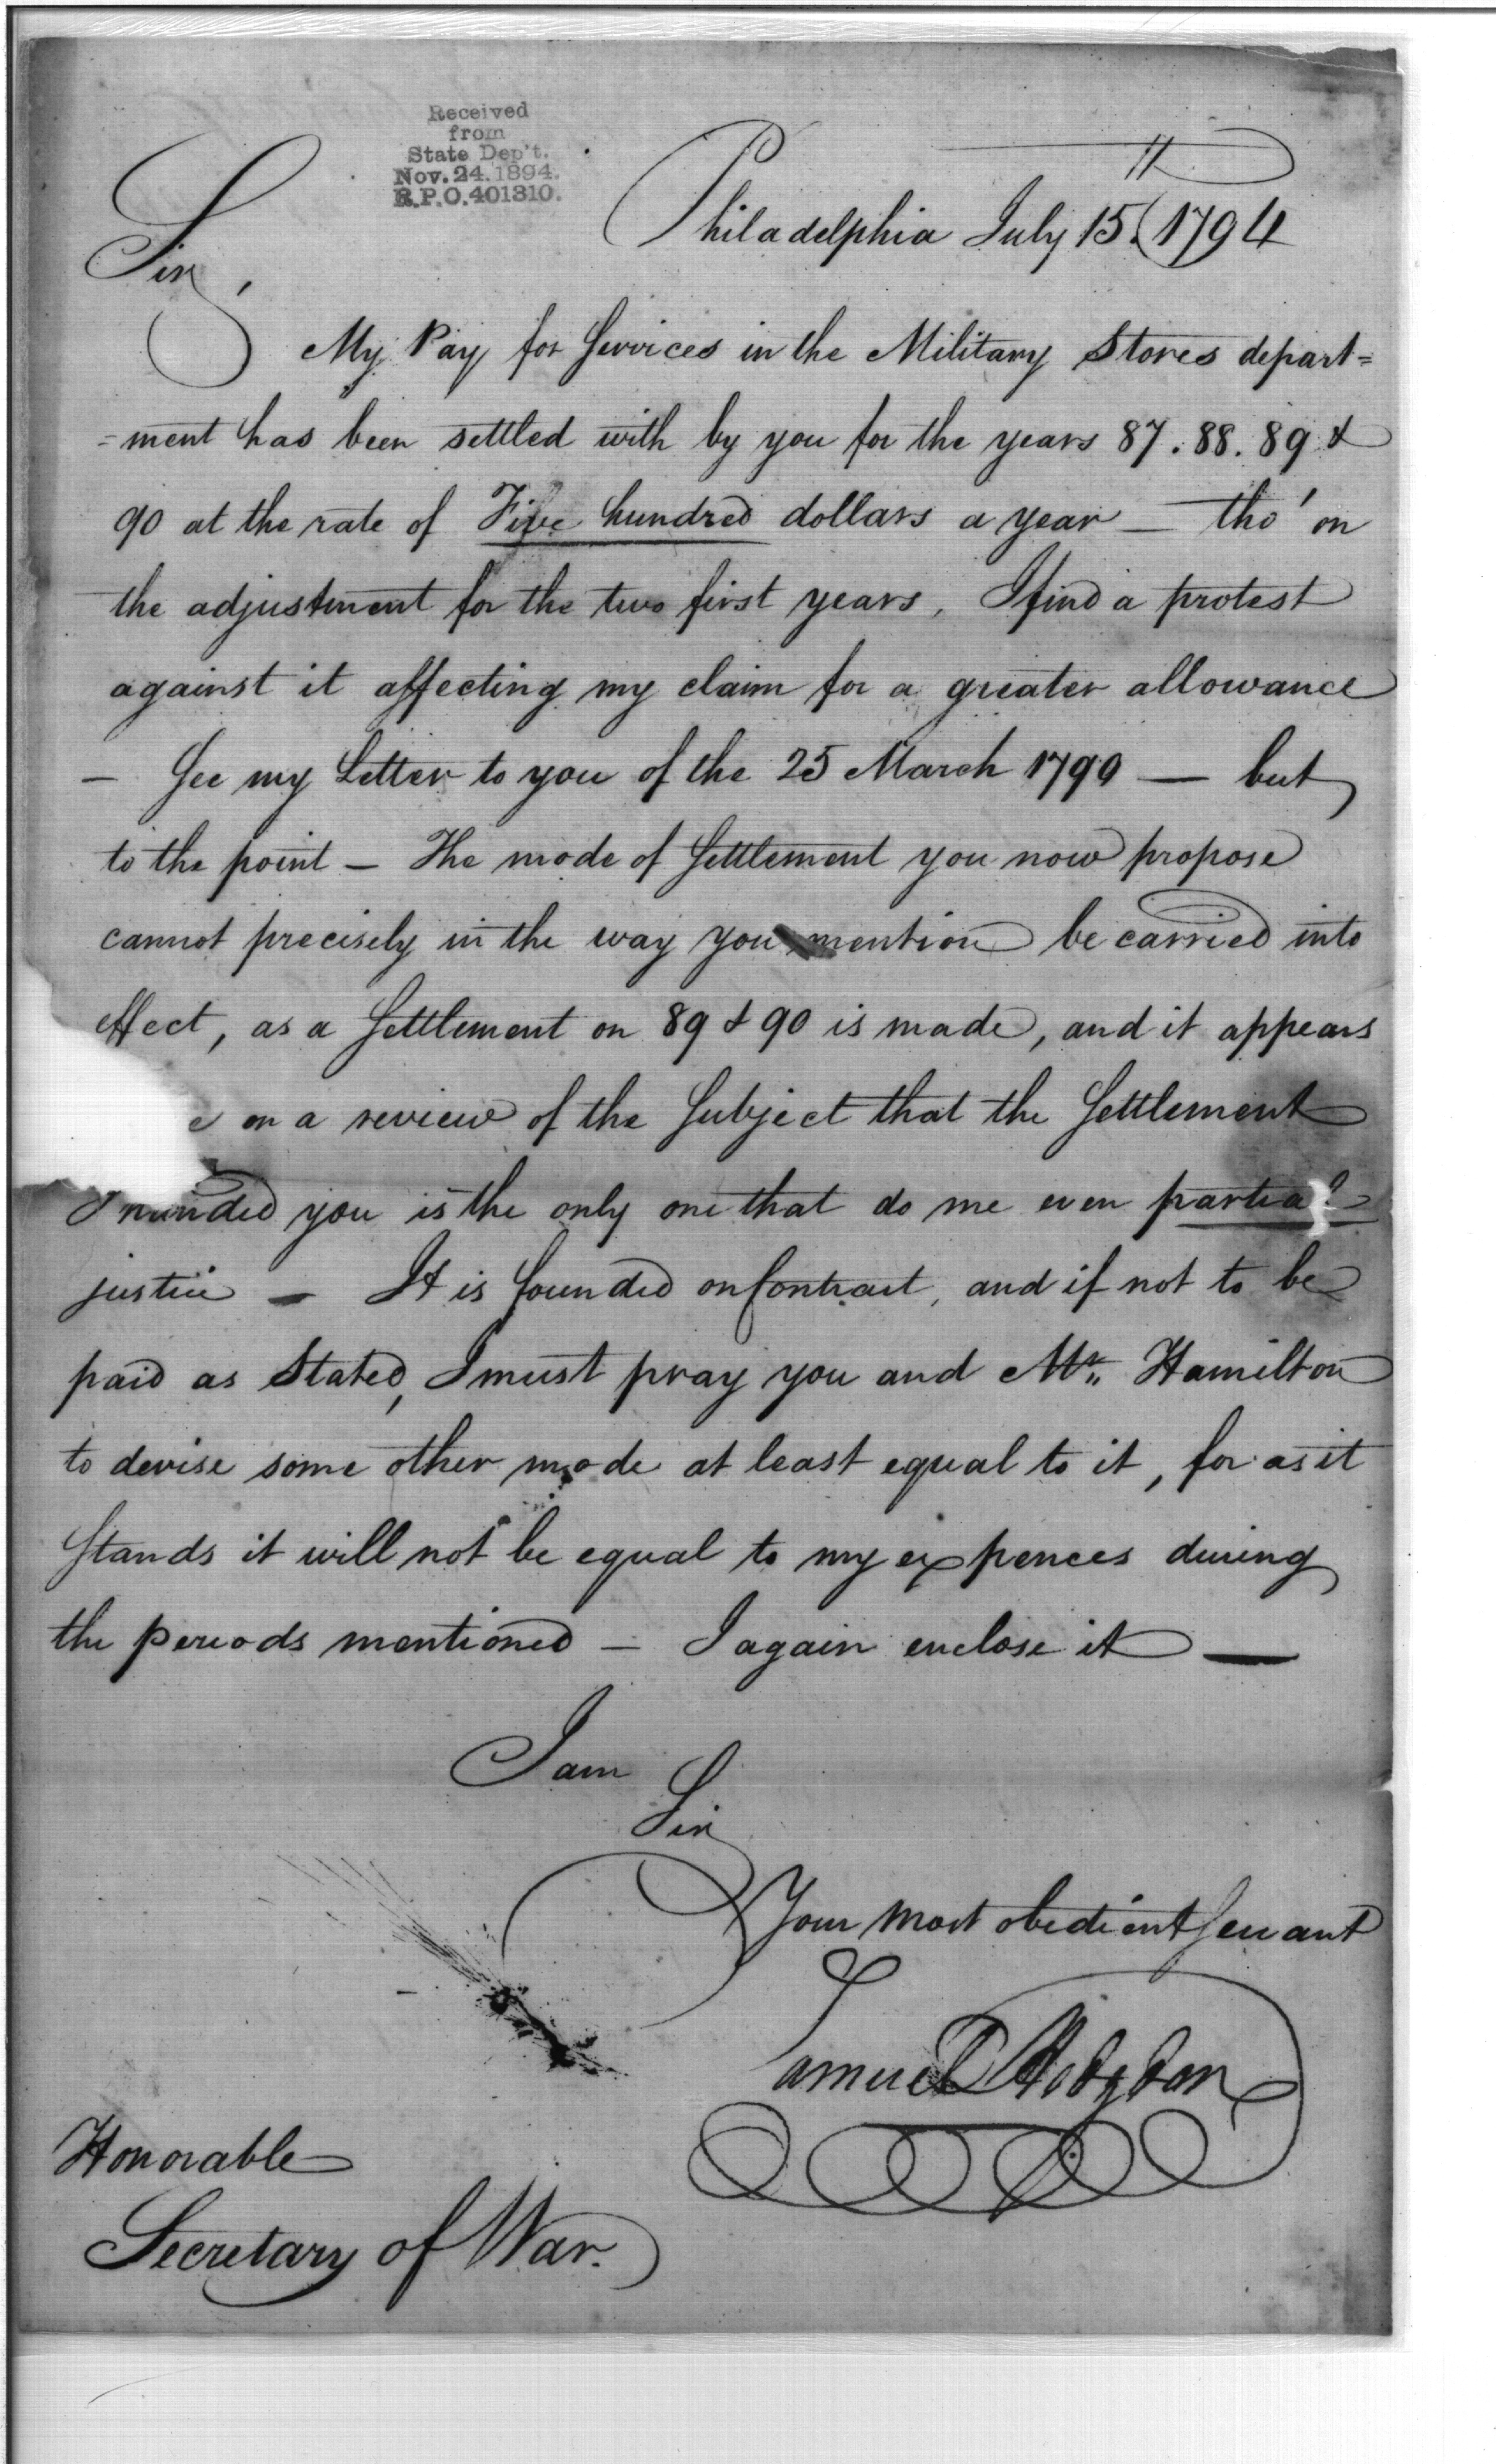 Received
from
State Dep't.
Nov. 24. 1894.
R.P.O. 401310.
Philadelphia July 15. 1794
Sir,
My Pay for Services in the Military Stores depart=
=ment has been settled with by you for the years 87. 88. 89 &
90 at the rate of Five hundred dollars a year — tho' on
the adjustment for the two first years, I find a protest
against it affecting my claim for a greater allowance
— See my Letter to you of the 25 March 1790 — but
to the point — The mode of Settlement you now propose
cannot precisely in the way you mention be carried into
effect, as a Settlement on 89 & 90 is made, and it appears
on a review of the Subject that the Settlement
you is the only one that do me even partial
justice — It is founded on Contract, and if not to be
paid as Stated, I must pray you and Mr. Hamilton
to devise some other mode at least equal to it, for as it
Stands it will not be equal to my expences during
the periods mentioned — I again enclose it —
I am
Sir
Your most obedient Servant
Samuel Hodgdon
Honorable
Secretary of War.